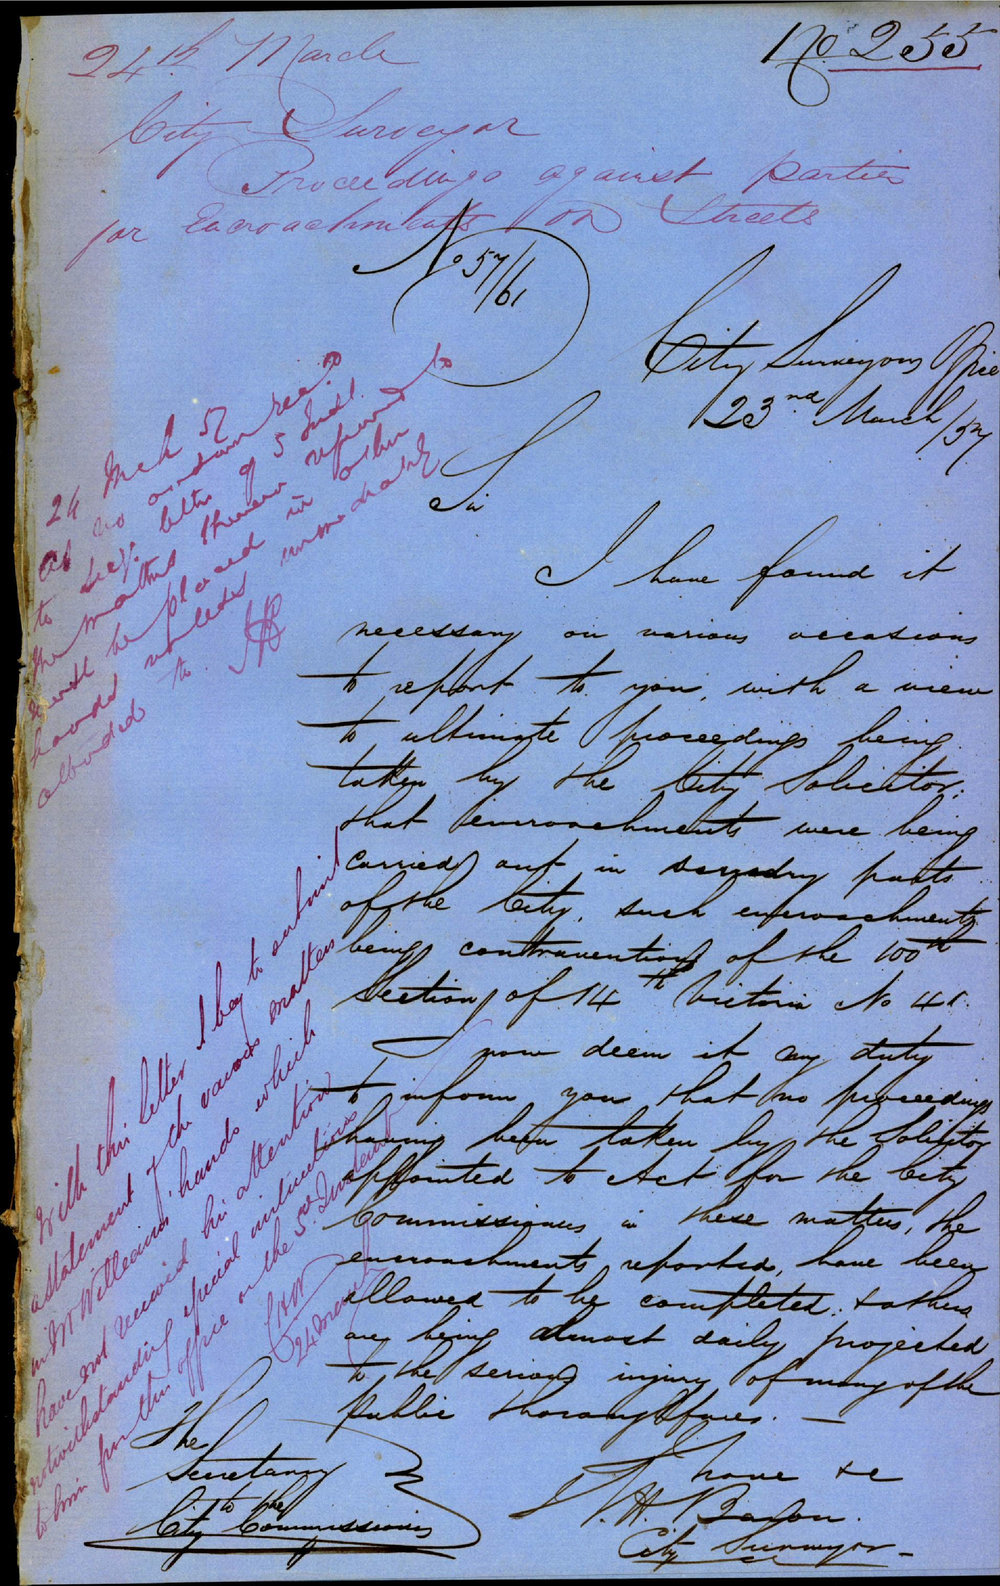 No. 255
24th March
City Surveyor
Proceedings against parties
for Encroachments on Streets
No 57/61
City Surveyors Office
23rd March/57
Sir
I have found it
necessary on various occasions
to report to you, with a view
to ultimate proceedings being
taken by the City Solicitor,
that encroachments were being
carried out in sundry parts
of the City, such encroachments
being contraventions of the 100th
Section of 14th Victoria No 41.
I now deem it my duty
to inform you that no proceedings
having been taken by the Solicitor
appointed to Act for the City
Commissioners in these matters, the
encroachments reported, have been
allowed to be completed; & others
are being almost daily projected
to the serious injury of many of the
public thoroughfares. —
I have &c
City Surveyor
The
Secretary
to the
City Commissioners
24 Mch 57
as no answer
to Secy. letter of 5 Inst.
the matters therein referred to
will be placed in other
hands unless immediately
attended to
With this letter I beg to submit
a statement of the various matters
in Mr Williams' hands which
have not received his attention
notwithstanding special instructions
to him from this office on the 5th Instant
24 March